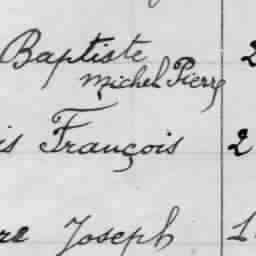 Baptiste 2
Michel Pierre
is François 2
re Joseph 1